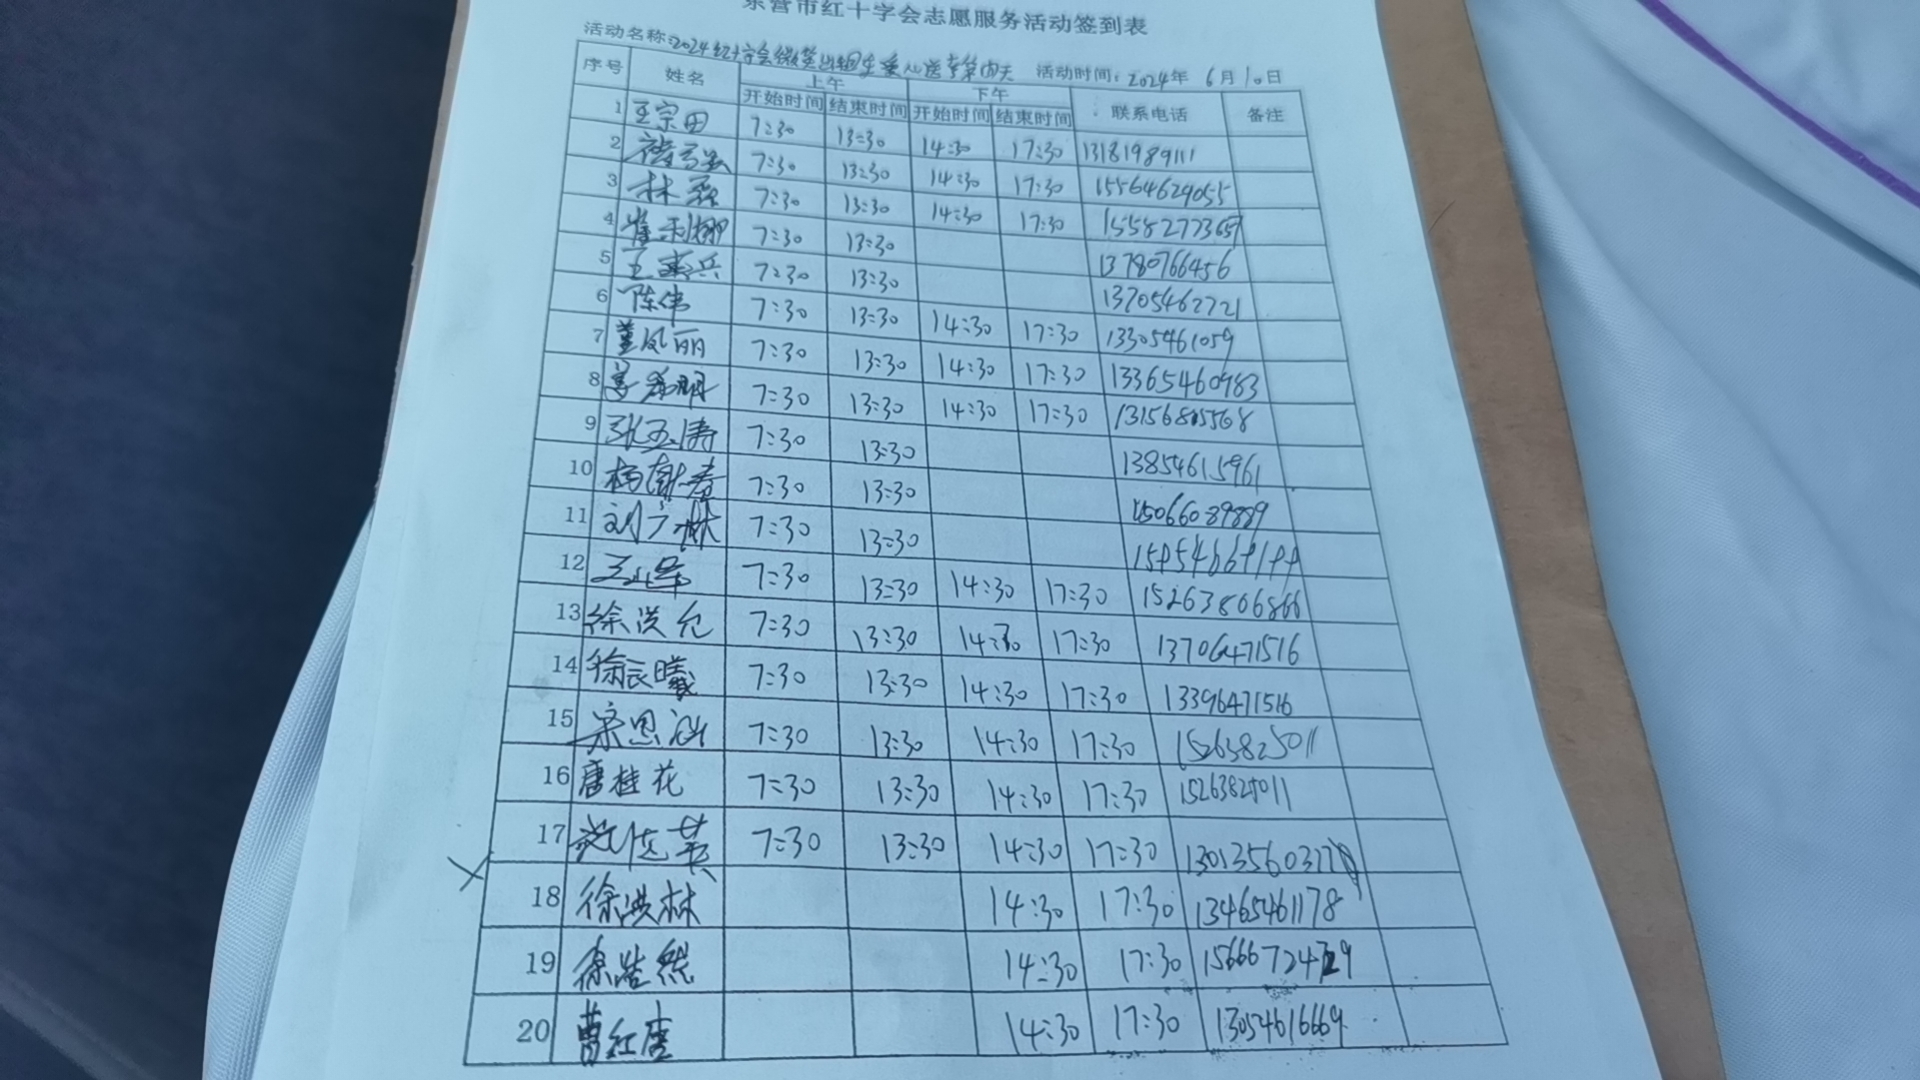 东营市红十字会志愿服务活动签到表
活动名称:2024红十字会 活动时间: 2024年 6月10日
序号 姓名 上午 下午 联系电话 备注
开始时间 结束时间 开始时间 结束时间
1 王宗田 7:30 13:30 14:30 17:30 13181989111
2 7:30 13:30 14:30 17:30 15564629055
3 林森 7:30 13:30 14:30 17:30 15582773657
4 崔利娜 7:30 13:30 13780766456
5 王 兵 7:30 13:30 13705462721
6 陈伟 7:30 13:30 14:30 17:30 13305461059
7 董凤丽 7:30 13:30 14:30 17:30 13365460983
8 7:30 13:30 14:30 17:30 13156805568
9 张玉涛 7:30 13:30 13854615961
10 杨 春 7:30 13:30 15066089889
11 刘广林 7:30 13:30
12 7:30 13:30 14:30 17:30 15263806866
13 徐洪允 7:30 13:30 14:30 17:30 13706471516
14 徐辰曦 7:30 13:30 14:30 17:30 13396471516
15 宋恩 7:30 13:30 14:30 17:30 15263825011
16 唐桂花 7:30 13:30 14:30 17:30 15263825011
17 7:30 13:30 14:30 17:30
18 徐洪林 14:30 17:30 13465461178
19 徐浩然 14:30 17:30 15666724729
20 曹红唐 14:30 17:30 13054616669